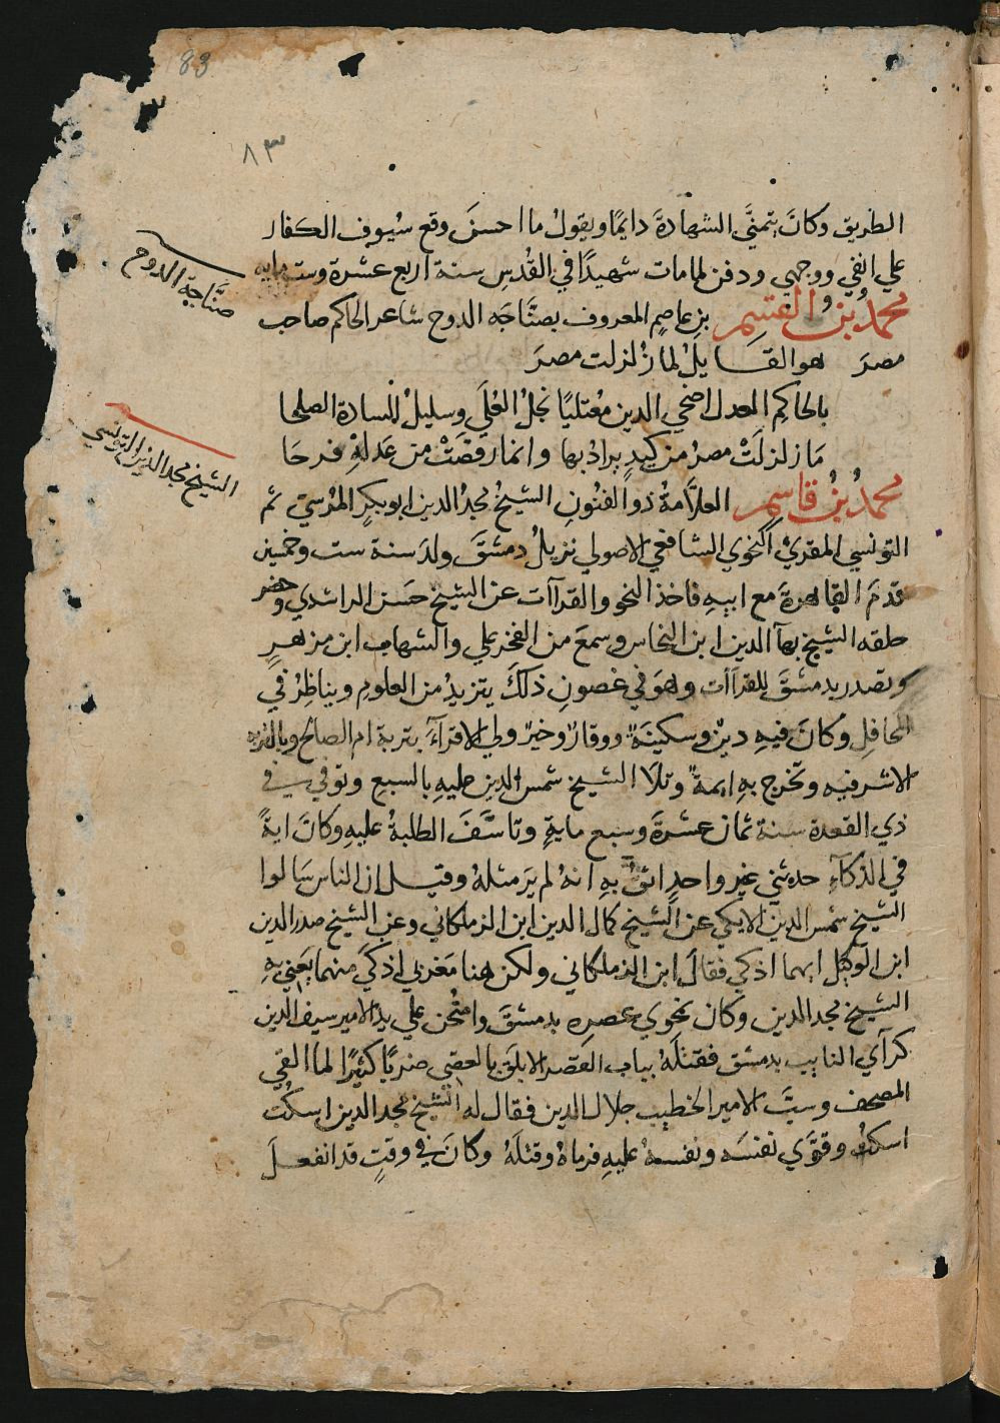 83
٨٣
الطريق وكانَ يتمنَّى الشهادةَ دايمًا ويقولُ ما احسنَ وقع سُيوف الكفار
علي انفي ووجهي ودفن لما مات شهيدًا في القُدسِ سنة اربع عشرة وست مايه
صنَّاجة الدوح
محمدُ بنُ القسم بن عاصمٍ المعروف بصنَّاجَه الدوح شاعر الحاكم صاحب
مصرَ هو القايلُ لما زُلزلت مصرَ
بالحاكِم العدل اضحي الدين معتليًا نجلُ العُلَي وسليلُ السادة الصلحا
مَا زلزلَتْ مصرُ من كيدٍ يراد بها وانما رقصَتْ من عَدلهِ فرحَا
الشيخ مجد الدين التونسي
محمدُ بنُ قاسم العلاَّمةُ ذو الفنُونِ الشيخُ مجدُ الدين ابو بكرٍ المرُسيّ ثم
التونسي المقريُ النحوي الشافعي الاصولي نزيلُ دمشقَ ولدَ سنة ست وخمسين
قدمَ القاهرةَ مع ابيهِ فاخذ النحو والقراآت عن الشيخ حَسَن الراشدي وحضر
حلقه الشيخ بهآ الدين ابن النحاس وسمعَ من الفخر علي والشهاب ابن مزهرٍ
وتصدر بدمشقَ للقراآت وهوَ في غصونِ ذلكَ يتزيدُ من العلوم ويناظِرُ في
المحافلِ وكانَ فيهِ دينٌ وسكينَةٌ ووقارٌ وخيرٌ ولي الاقرآءَ بتربة ام الصالح وبالتربه
الاشرفيه وتخرج بهِ ايمةٌ وتلاَ الشيخ شمس الدين عليهِ بالسبع وتوفي في
ذي القعدة سنة ثمان عشرَةَ وسبع مايةٍ وتاسَّفَ الطلبةُ عليهِ وكانَ ايةً
في الذكآءِ حدثني غير واحدٍ اثقُ بهِ انهُ لم يرَ مثلهُ وقيل ان الناس سَالوا
الشيخ شمس الدين الايكي عن الشيخ كمال الدين ابن الزملكاني وعن الشيخ صدر الدين
ابن الوكيل ايهما اذكي فقالَ ابن الزملكاني ولكن هنا مَغربي اذكَي منهما يَعني بهِ
الشيخ مجد الدين وكان نحوي عصرِه بدمشقَ وامتُحن علي يد الامير سيف الدين
كرآي النايب بدمشق فقتلَهُ بباب القصر الابلَق بالعصِي ضربًا كثيرًا لما القي
المصحف وسبَّ الامير الخطيب جلال الدين فقال له الشيخ مجد الدين اسكُت
اسكت وقوَّي نفسَه ونفسهُ عليهِ فرماهُ وقتلَهُ وكانَ في وقتٍ قد انفعلَ